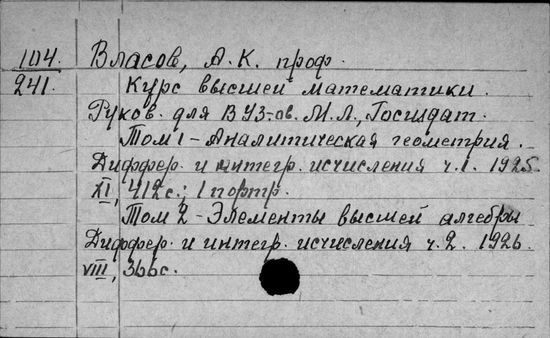 104. Власов, А. К. проф.
241. Курс высшей математики.
Руков. для ВУЗ-ов. М.Л., Госиздат.
Том 1 - Аналитическая геометрия.
Диффер. и интегр. исчисления ч. 1. 1925.
XI, 412 с.; 1 портр.
Том 2 - Элементы высшей алгебры
Диффер. и интегр. исчисления ч. 2. 1926.
VIII, 366 с.